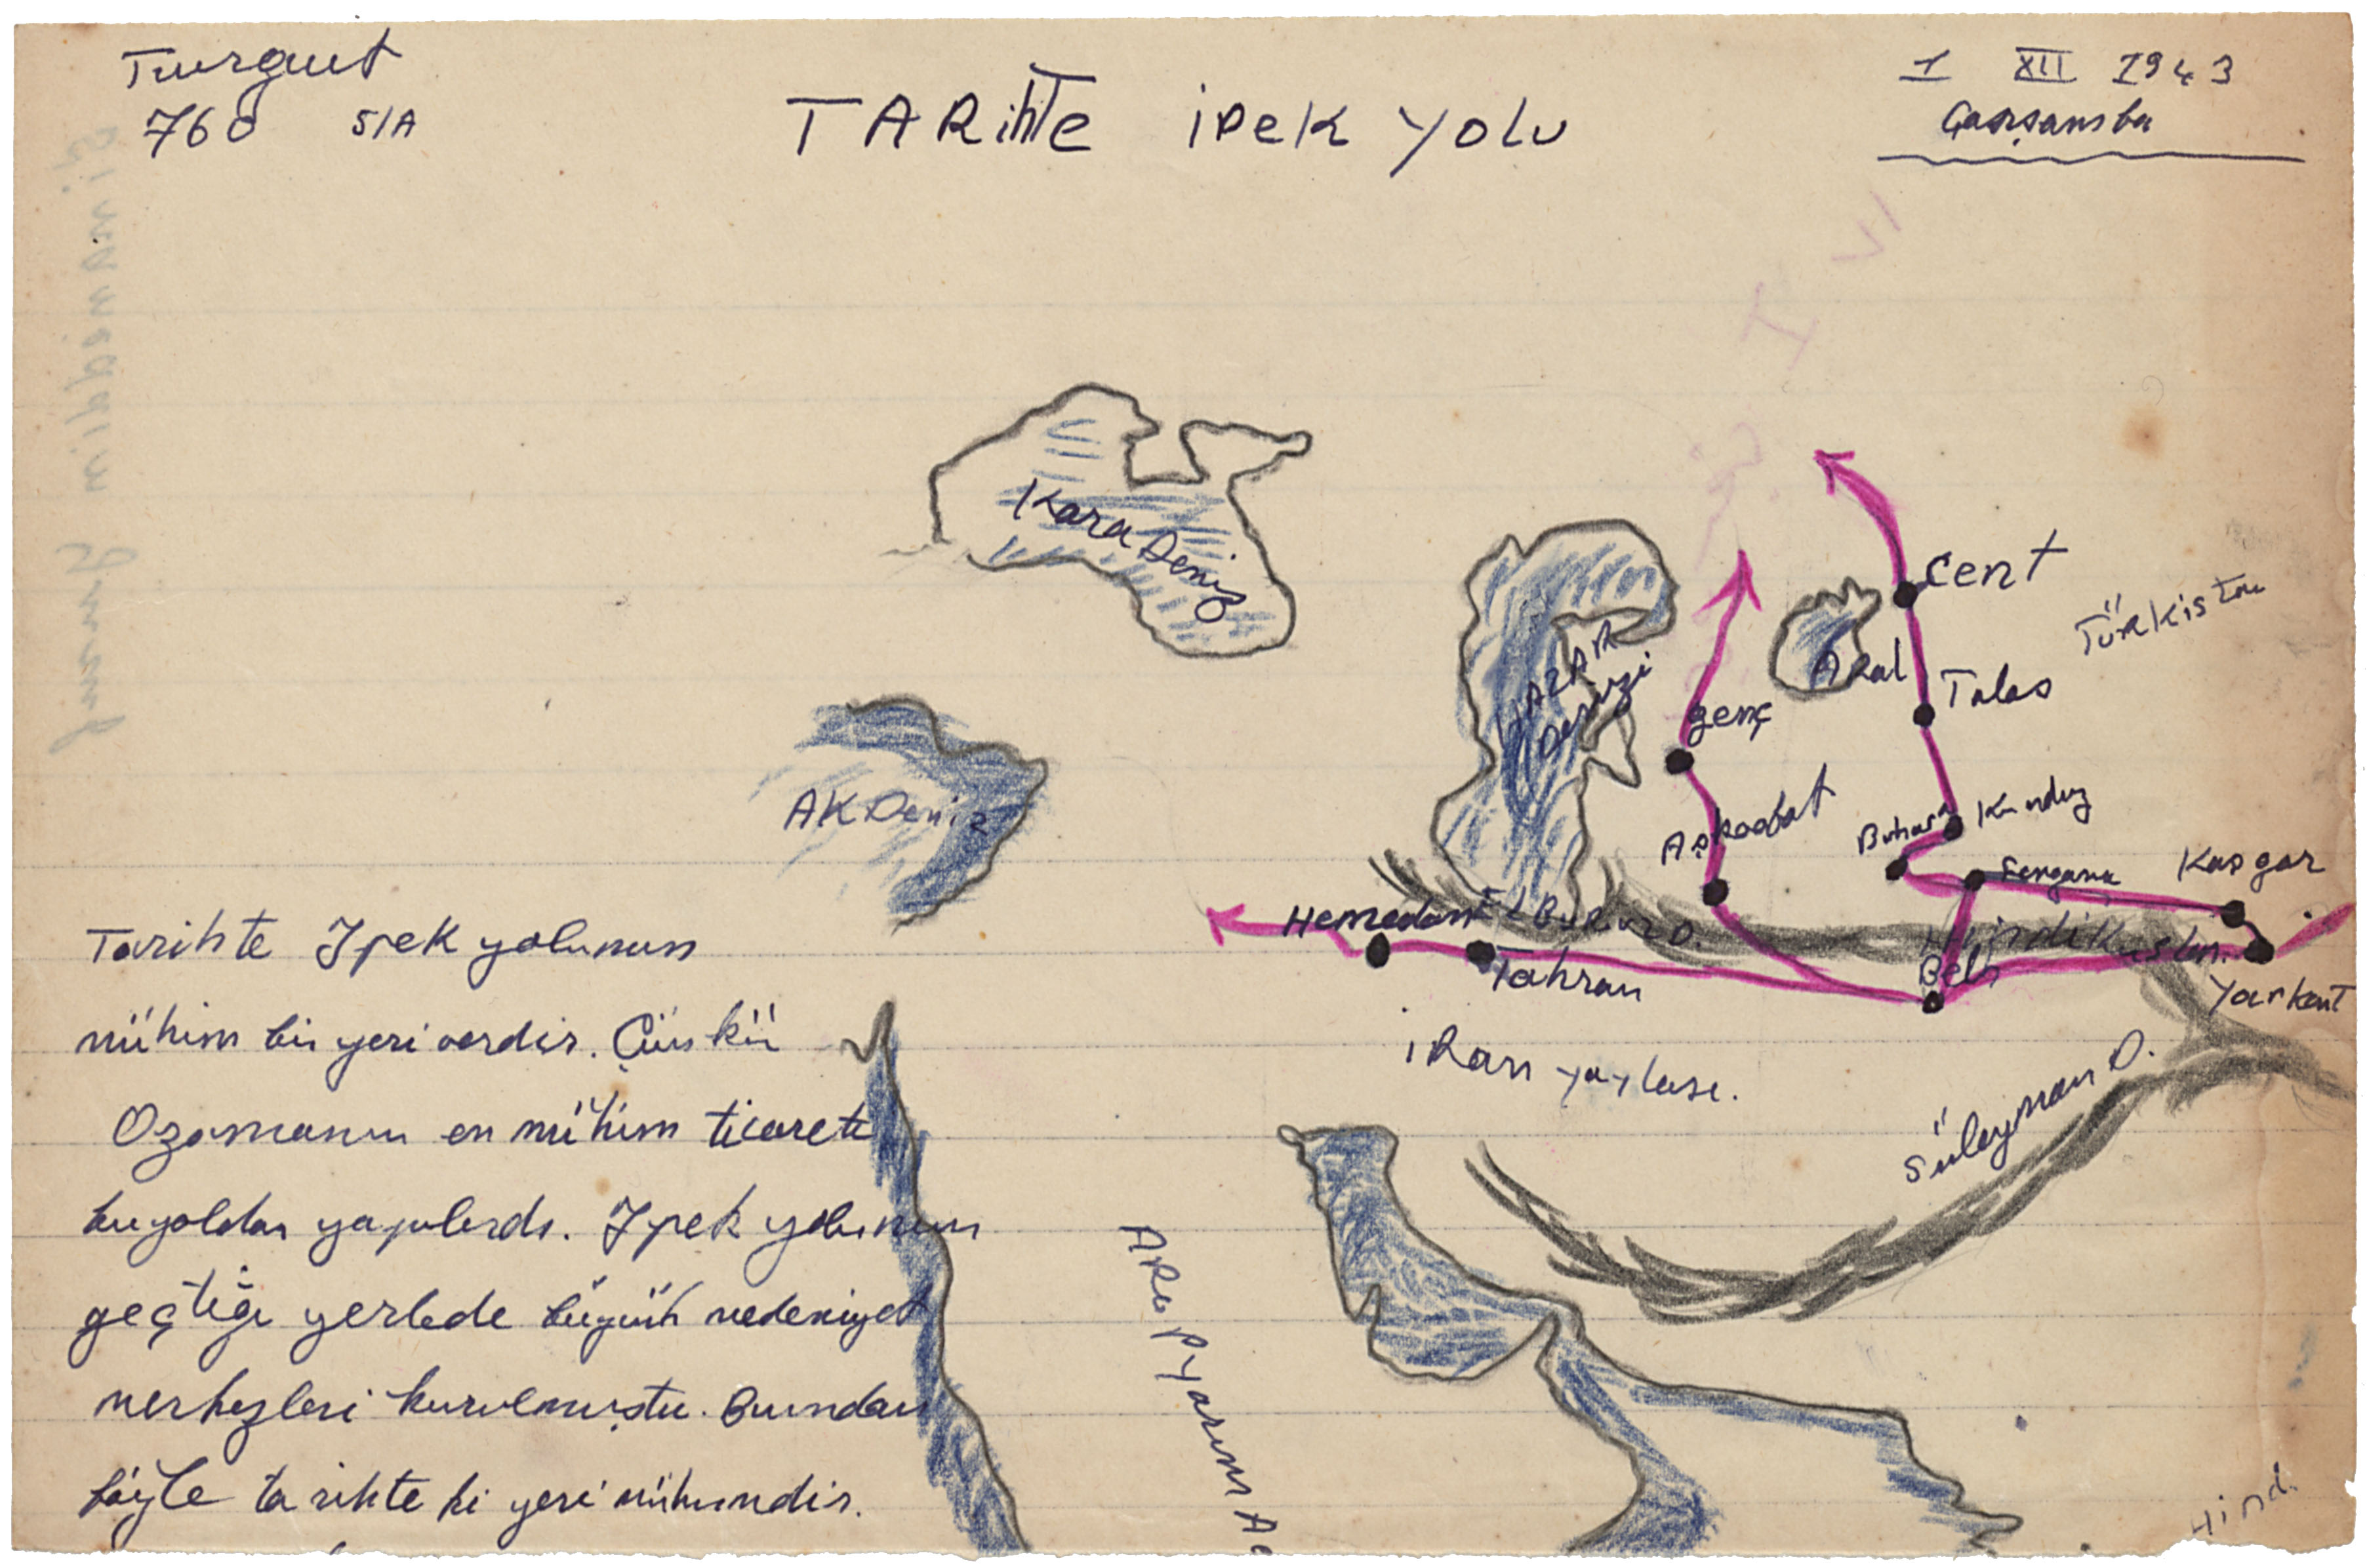 Turgut
760 5/A
TARihTe ipeK YOLU
1 XII 1943
Çarşamba
Kara Deniz
AKDeniz
HAZAR
Denizi
Aral
Cent
Türkistan
Talas
genç
Aşkaabat
Buhara
Kunduz
Fergana
Kaşgar
Hemedan
ElBuruz D.
Tahran
Hindikuş
Belh
Yarkent
iRan yaylası.
Süleyman D.
Arap Yarım A
Hind.
Tarihte Ipek yolunun
mühim bir yeri vardır. Çünkü
Ozamanın en mühim ticareti
bu yoldan yapılırdı. Ipek yolunun
geçtiği yerlede büyük medeniyet
merkezleri kurulmuştu. Bundan
böyle tarihte ki yeri mühimdir.